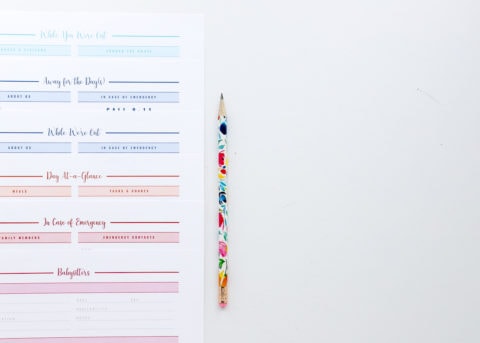 While You Were Out
& VISITORS AROUND THE HOUSE
Away for the Day(s)
ABOUT US IN CASE OF EMERGENCY
While We're Out
ABOUT US IN CASE OF EMERGENCY
Day At-a-Glance
MEALS TASKS & CHORES
In Case of Emergency
FAMILY MEMBERS EMERGENCY CONTACTS
Babysitters
NAME
AVAILABILITY
NOTES